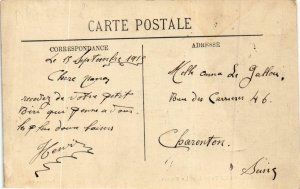 CARTE POSTALE
CORRESPONDANCE
Le 15 Septembre 1915
Chere
recevez de votre petit
qui pense a vous
les plus doux baisers
Henri
ADRESSE
Melle Anna Le Gallou
Rue des Carrieres 46
Charenton
Seine